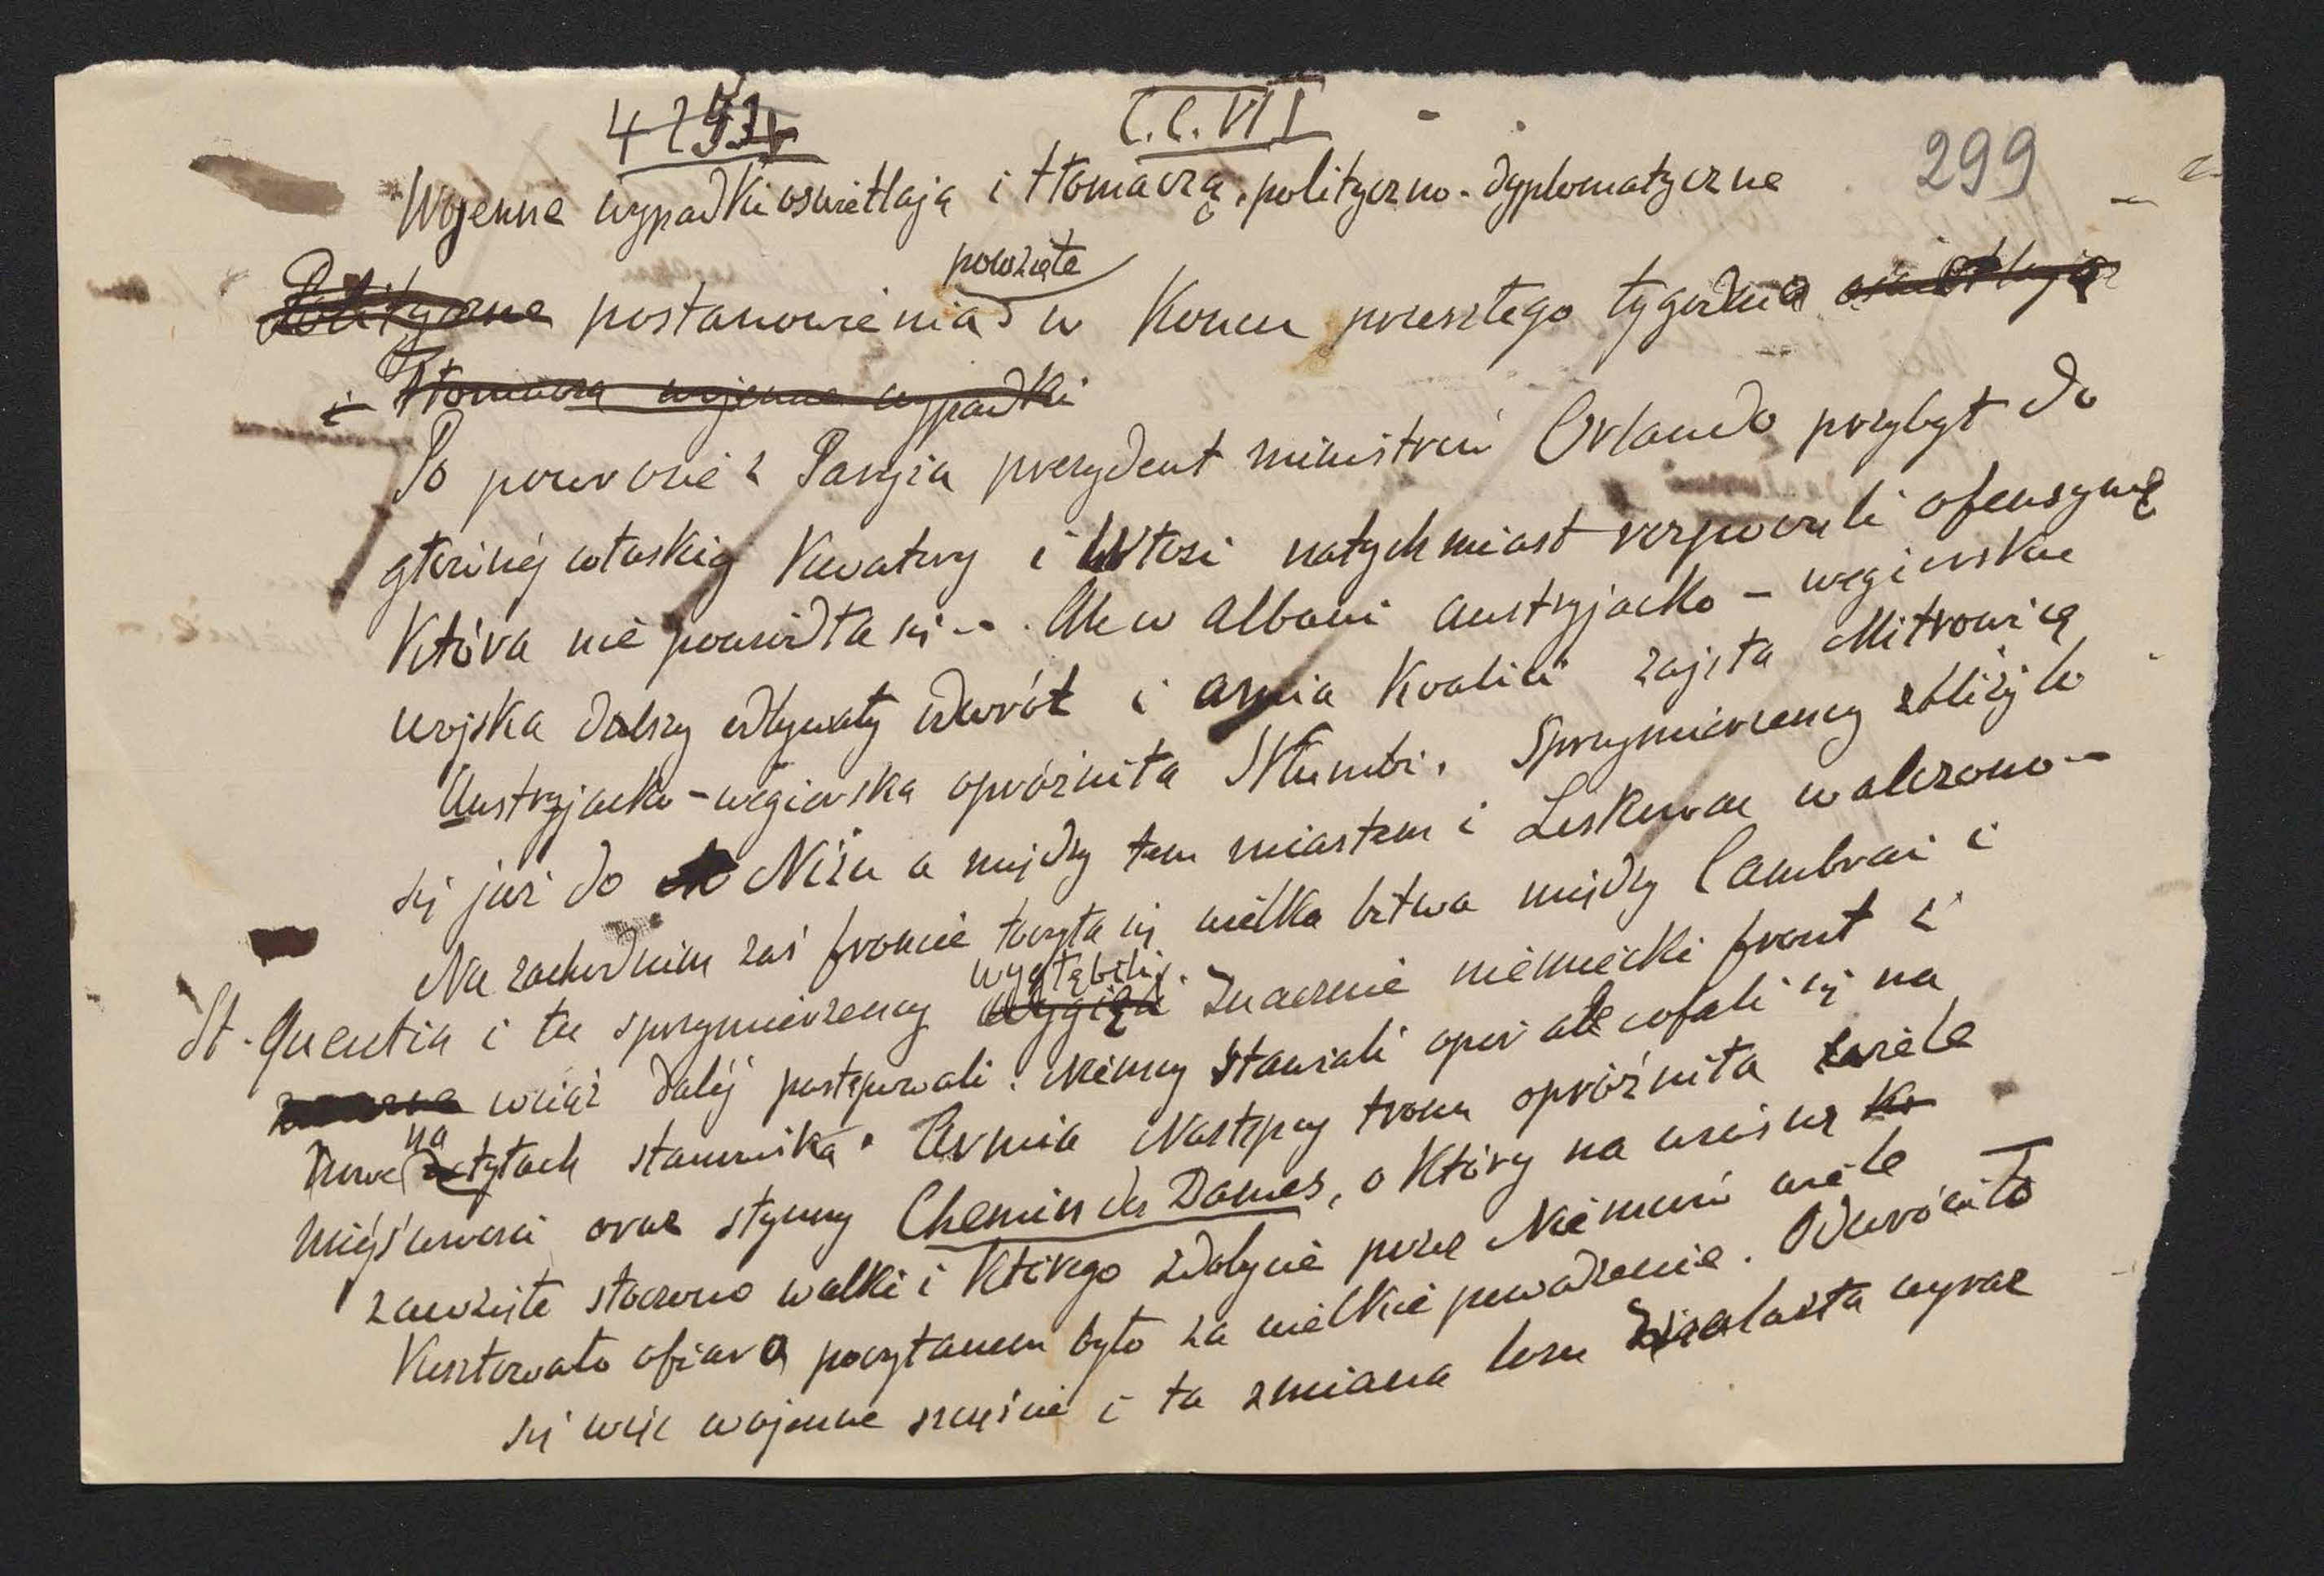 C.C.VII
299
Wojenne wypadki oświetlają i tłomaczą polityczno-dyplomatyczne
powzięte
Polityczne postanowienia w końcu przeszłego tygodnia oświetlają
i tłomaczą wojenne wypadki
Po powrocie z Paryża prezydent ministrów Orlando przybył do
głównéj włoskiéj kwatery i Włosi natychmiast rozpoczęli ofensywę
która nie powiodła się -. Ale w Albanii austryjacko-węgierskie
wojska dalszy odbywały odwrót i armia koalicii zajęła Mitrowicę
Austryjacko-węgierska opróżniła Skumbi. Sprzymierzeńcy zbliżyli
się już do Niżu a między tem miastem i Leskovac walczono -
Na zachodnim zaś froncie toczyła się wielka bitwa między Cambrai i
wygłębili
St. Quentin i tu sprzymierzeńcy znacznie niemiecki front i
wciąż daléj postępowali. Niemcy stawiali opór ale cofali się na
na
nowe tyłach stanowiska. Armia Następcy tronu opróżniła wiele
miéjscowości oraz słynny Chemin des Dames, o który na wiosnę
zawzięte stoczono walki i którego zdobycie przez Niemców wiele
kosztowało ofiar a poczytanem było za wielkie powodzenie. Odwróciło
się więc wojenne szczęście i ta zmiana losu znalazła wyraz